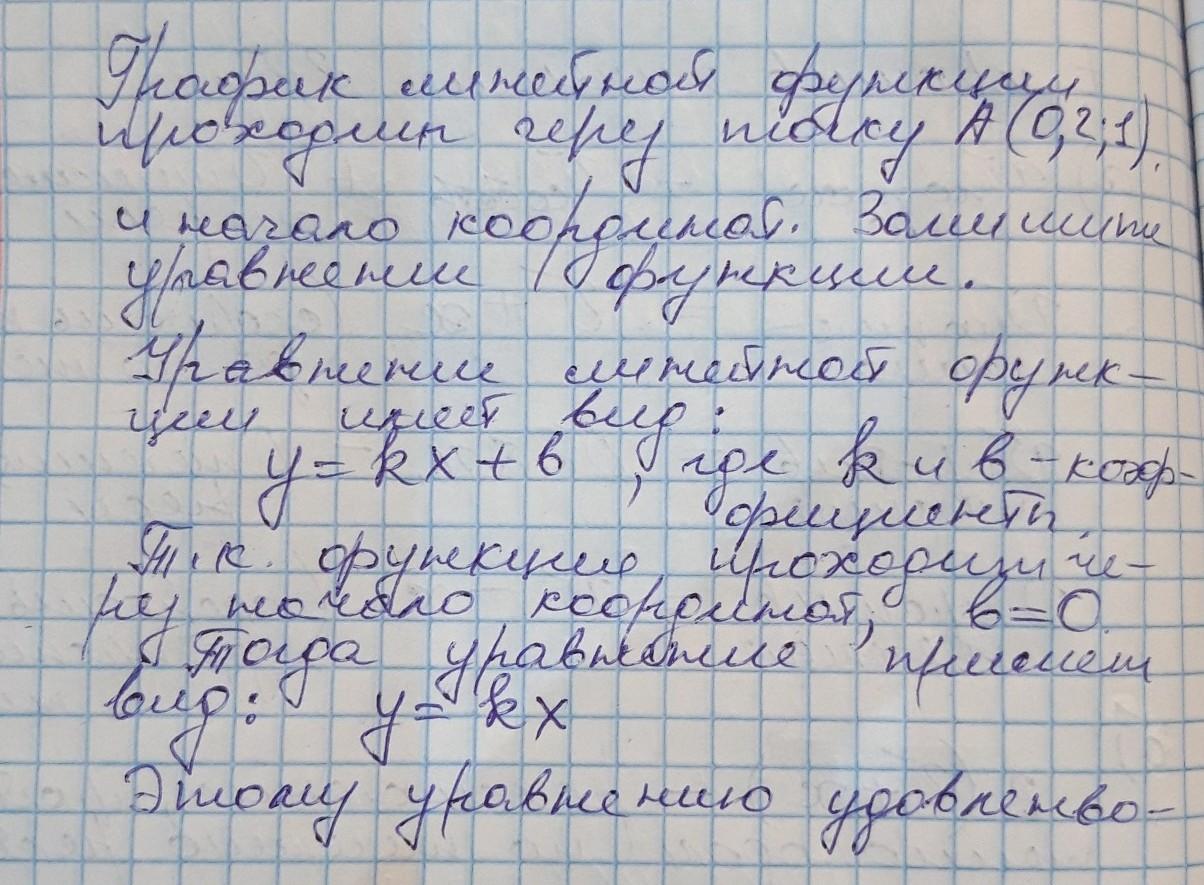 График линейной функции
проходит через точку А (0,2;1).
и начало координат. Запишите
уравнение функции.
Уравнение линейной функ-
ции имеет вид:
y = kx + b , где k и b - коэф-
фициенты.
Т.к. функция проходит че-
рез начало координат, b = 0.
Тогда уравнение примет
вид: y = kx
Этому уравнению удовлетво-